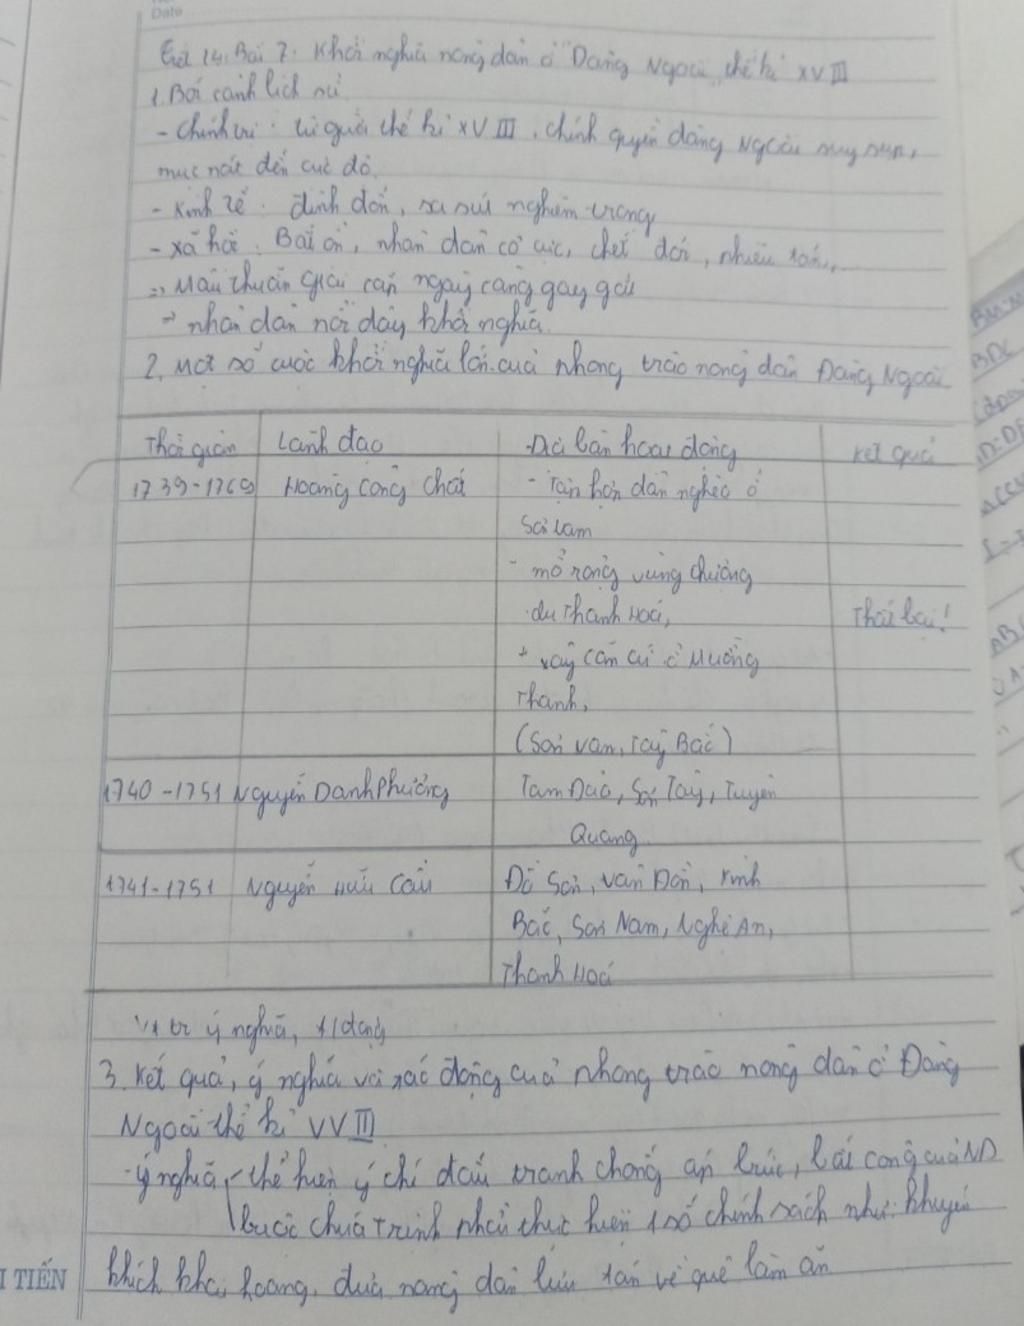 Date
Tiết 14: Bài 7: Khởi nghĩa nông dân ở Đàng Ngoài thế kỉ XVIII
1. Bối cảnh lịch sử
- Chính trị: từ giữa thế kỉ XVIII, chính quyền đàng Ngoài suy sụp,
mục nát đến cực độ.
- Kinh tế: đình đốn, sa sút nghiêm trọng
- Xã hội: Bất ổn, nhân dân cơ cực, chết đói, phiêu tán,
=> Mâu thuẫn giai cấp ngày càng gay gắt
→ nhân dân nổi dậy khởi nghĩa
2. Một số cuộc khởi nghĩa lớn của phong trào nông dân Đàng Ngoài
Thời gian Lãnh đạo Địa bàn hoạt động Kết quả
1739-1769 Hoàng Công Chất - Tập hợp dân nghèo ở
Sơn Nam
- mở rộng vùng thượng
du Thanh Hoá,
+ xây căn cứ ở Mường Thất bại!
Thanh,
(Sơn Nam, Tây Bắc)
1740-1751 Nguyễn Danh Phương Tam Đảo, Sơn Tây, Tuyên
Quang
1741-1751 Nguyễn Hữu Cầu Đồ Sơn, Vân Đồn, Kinh
Bắc, Sơn Nam, Nghệ An,
Thanh Hoá
ý nghĩa, t/động
3. Kết quả, ý nghĩa và tác động của phong trào nông dân ở Đàng
Ngoài thế kỉ XVIII
- Ý nghĩa thể hiện ý chí đấu tranh chống áp bức, bất công của ND
buộc chúa Trịnh phải thực hiện 1 số chính sách như: khuyến
khích khai hoang, đưa nông dân lưu tán về quê làm ăn
I TIẾN